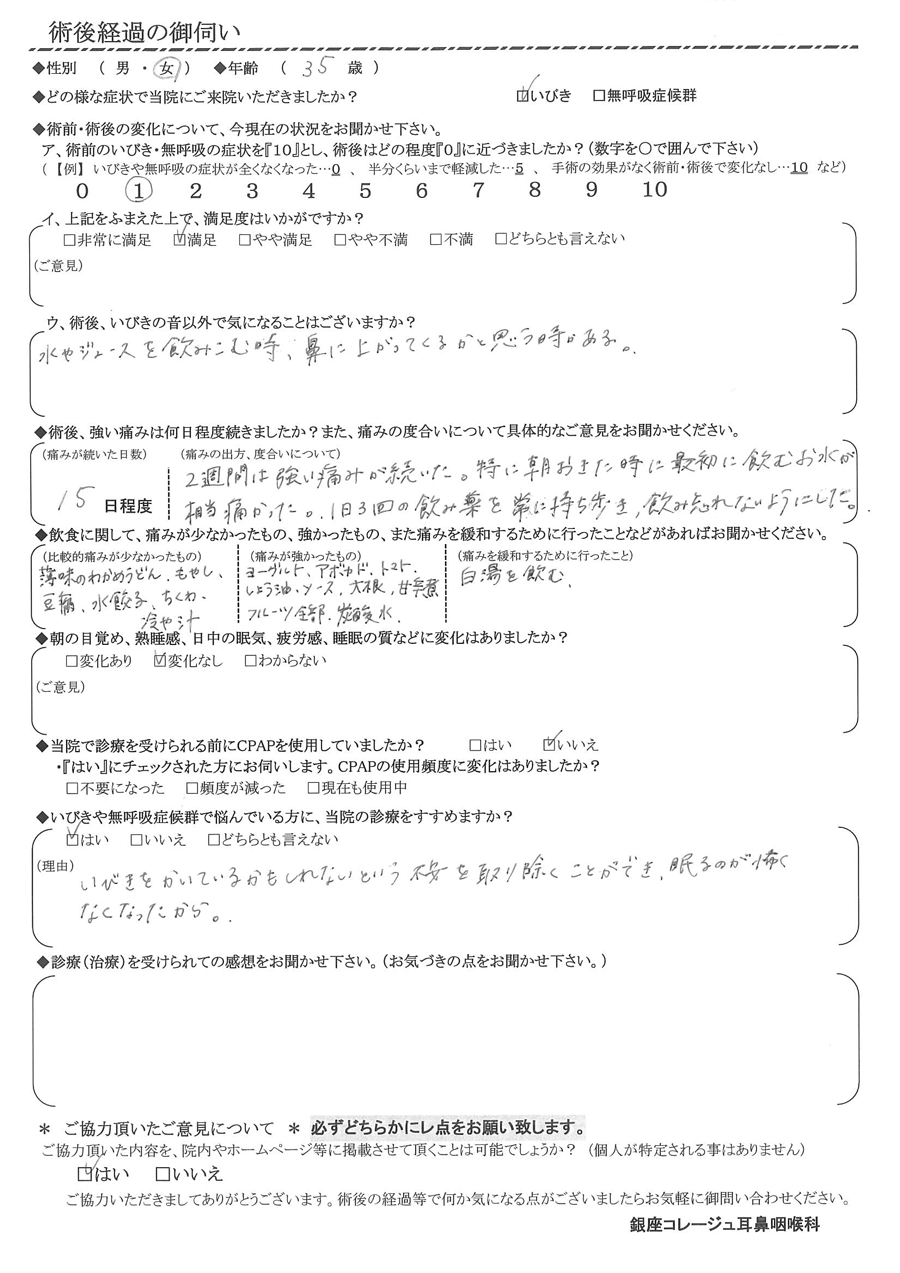 術後経過の御伺い
◆性別 ( 男 ・ 女 ) ◆年齢 ( 35 歳 )
◆どの様な症状で当院にご来院いただきましたか? ☑いびき □無呼吸症候群
◆術前・術後の変化について、今現在の状況をお聞かせ下さい。
ア、術前のいびき・無呼吸の症状を『10』とし、術後はどの程度『0』に近づきましたか?(数字を○で囲んで下さい)
(【例】いびきや無呼吸の症状が全くなくなった…0 、 半分くらいまで軽減した…5 、 手術の効果がなく術前・術後で変化なし…10 など)
0 1 2 3 4 5 6 7 8 9 10
イ、上記をふまえた上で、満足度はいかがですか?
□非常に満足 ☑満足 □やや満足 □やや不満 □不満 □どちらとも言えない
(ご意見)
ウ、術後、いびきの音以外で気になることはございますか?
水やジュースを飲みこむ時、鼻に上がってくるかと思う時がある。
◆術後、強い痛みは何日程度続きましたか?また、痛みの度合いについて具体的なご意見をお聞かせください。
(痛みが続いた日数) (痛みの出方、度合いについて)
2週間は強い痛みが続いた。特に朝おきた時に最初に飲むお水が
15 日程度 相当痛かった。1日3回の飲み薬を常に持ち歩き、飲み忘れないようにした。
◆飲食に関して、痛みが少なかったもの、強かったもの、また痛みを緩和するために行ったことなどがあればお聞かせください。
(比較的痛みが少なかったもの) (痛みが強かったもの) (痛みを緩和するために行ったこと)
薄味のわかめうどん、もやし、 ヨーグルト、アボカド、トマト、 白湯を飲む、
豆腐、水餃子、ちくわ、 しょう油、ソース、大根、甘辛煮
冷や汁 フルーツ全部、炭酸水、
◆朝の目覚め、熟睡感、日中の眠気、疲労感、睡眠の質などに変化はありましたか?
□変化あり ☑変化なし □わからない
(ご意見)
◆当院で診療を受けられる前にCPAPを使用していましたか? □はい ☑いいえ
・『はい』にチェックされた方にお伺いします。CPAPの使用頻度に変化はありましたか?
□不要になった □頻度が減った □現在も使用中
◆いびきや無呼吸症候群で悩んでいる方に、当院の診療をすすめますか?
☑はい □いいえ □どちらとも言えない
(理由) いびきをかいているかもしれないという不安を取り除くことができ、眠るのが怖く
なくなったから。
◆診療(治療)を受けられての感想をお聞かせ下さい。(お気づきの点をお聞かせ下さい。)
＊ ご協力頂いたご意見について ＊ 必ずどちらかにレ点をお願い致します。
ご協力頂いた内容を、院内やホームページ等に掲載させて頂くことは可能でしょうか? (個人が特定される事はありません)
☑はい □いいえ
ご協力いただきましてありがとうございます。術後の経過等で何か気になる点がございましたらお気軽に御問い合わせください。
銀座コレージュ耳鼻咽喉科